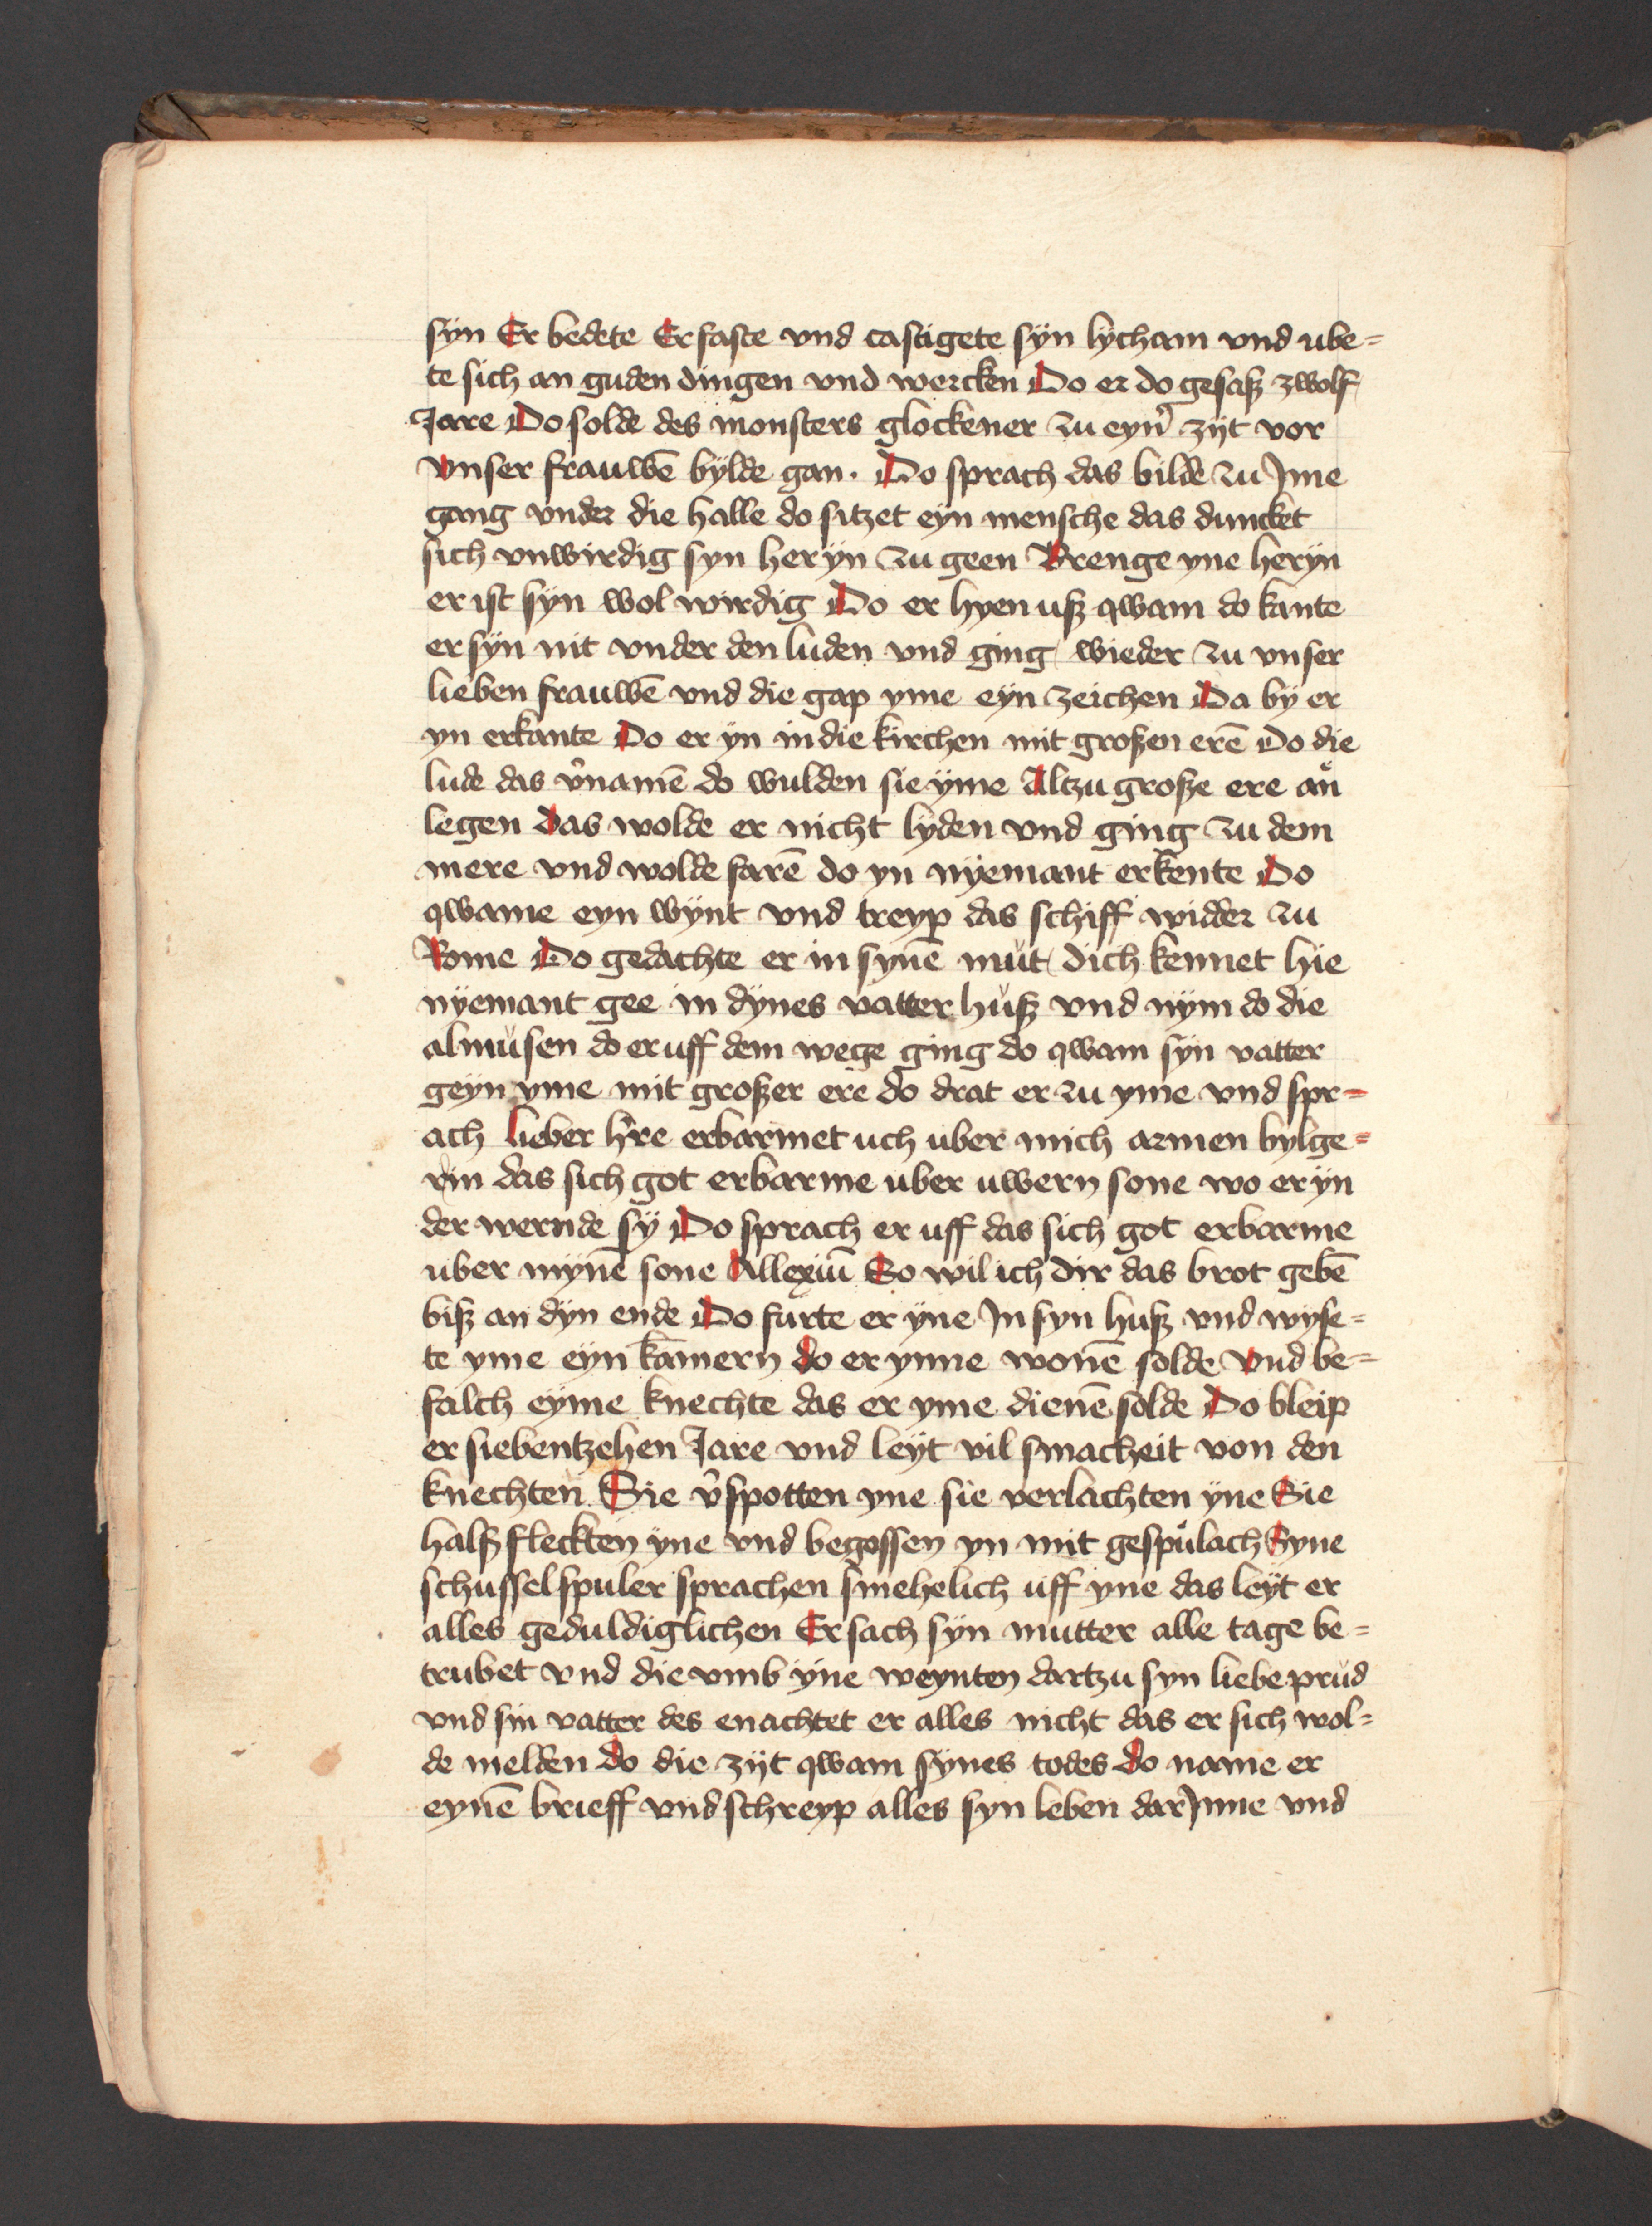 syn Er bedete Er faste vnd castigete syn lycham vnd ube=
te sich an guden dingen vnd wercken Do er do gesaß zwolf
Jare Do solde des monsters glockener zu eyn̉ zijt vor
vnser frauwē bylde gan · Do sprach das bilde zu Jme
gang vnder die halle do sitzet eyn mensche das duncket
sich vnwirdig syn her yn zu geen Brenge yne heryn
er ist syn wol wirdig Do er hyen uß qwam do kante
er syn nit vnder den luden vnd ging wieder zu vnser
lieben frauwē vnd die gap yme eyn zeichen Da by er
yn erkante Do er yn in die kirchen mit großen erē Do die
lude das v̉namē do wulden sie yme Altzu große ere an
legen das wolde er nicht lyden vnd ging zu dem
mere vnd wolde farē do yn nyemant erkente Do
qwame eyn wynt vnd treyp das schiff widder zu
Rome Do gedachte er in synē mut dich kennet hie
nyemant gee in dynes vatter huß vnd nym do die
almusen do er uff dem wege ging do qwam syn vatter
geyn yme mit großer ere do drat er zu yme vnd spr=
ach lieber h̉re erbarmet uch uber mich armen bylge=
rin das sich got erbarme uber uwern sone wo er yn
der wernde sy Do sprach er uff das sich got erbarme
uber mynē sone Allexiū So wil ich dir das brot gebē
biß an dyn ende Do furte er yne Jn syn huß vnd wyse=
te yme eyn kamern do er ynne wonē solde vnd be=
falch eyme knechte das er yme dienē solde Do bleip
er siebentzehen Jare vnd leyt vil smacheit von den
knechten Sie v̉spotten yne sie verlachten yne Sie
halßfleckten yne vnd begossen yn mit gespulach Syne
schusselspuler sprachen smehelich uff yne das leyt er
alles geduldiglichen Er sach syn mutter alle tage be=
trubet vnd die vmb yne weynten dartzu syn liebe prud
vnd sin vatter des enachtet er alles nicht das er sich wol=
de melden do die zijt qwam synes todes do name er
eynē brieff vnd schreyp alles syn leben dar Jnne vnd